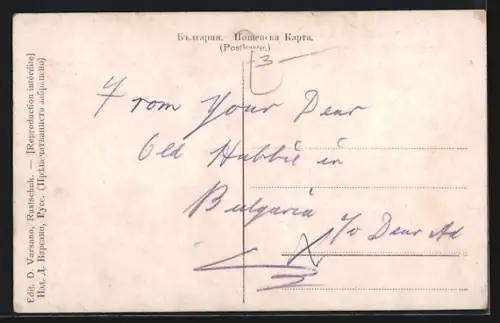 България. Пощенска Карта.
(Postkarte.)
3
From Your Dear
Old Hubbie in
Bulgaria
To Dear Ad
X
Edit. D. Varsano, Rustschuk. — [Reproduction interdite]
Изд. Д. Варсано, Русе. (Прѣпечатванието забранено)